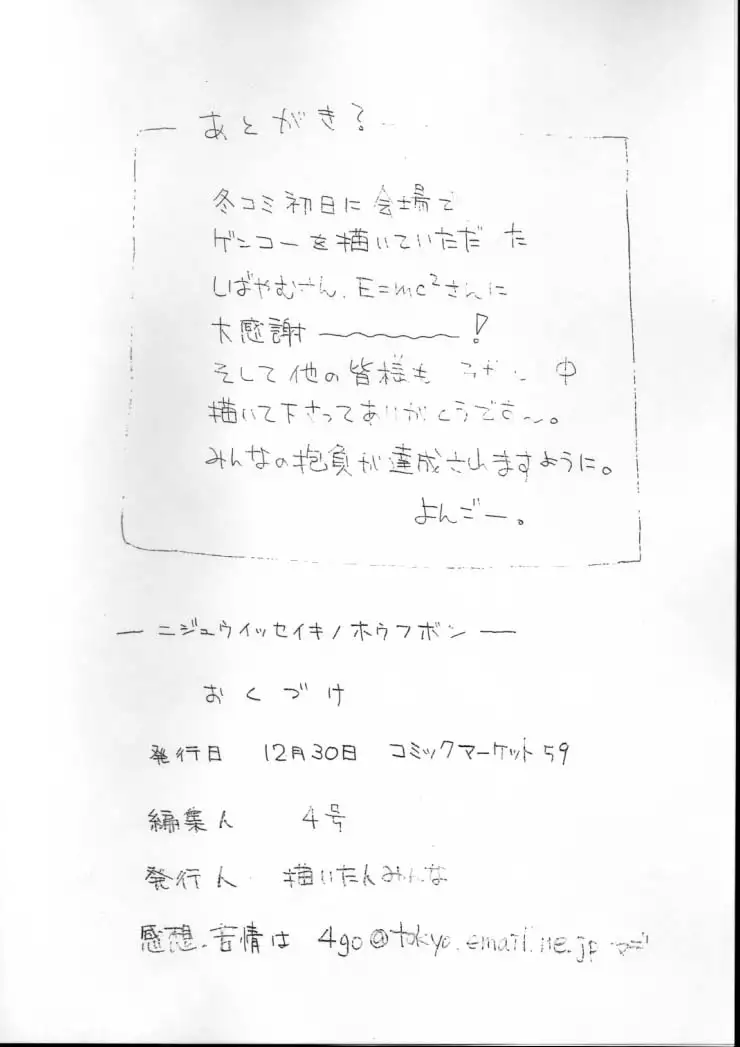 あとがき?
冬コミ初日に会場で
ゲンコーを描いていただ た
しばやむさん、E=mc²さんに
大感謝――――!
そして他の皆様も 中
描いて下さってありがとうです〜。
みんなの抱負が達成されますように。
よんごー。
― ニジュウイッセイキノホウフボン ―
おくづけ
発行日 12月30日 コミックマーケット59
編集人 4号
発行人 描いたんみんな
感想、苦情は 4go@tokyo.email.ne.jp マデ